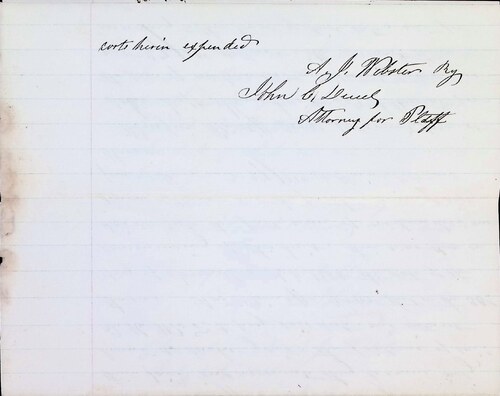 costs herin expended
A. J. Webster By
John C. Deuel
Attorney for Plaff